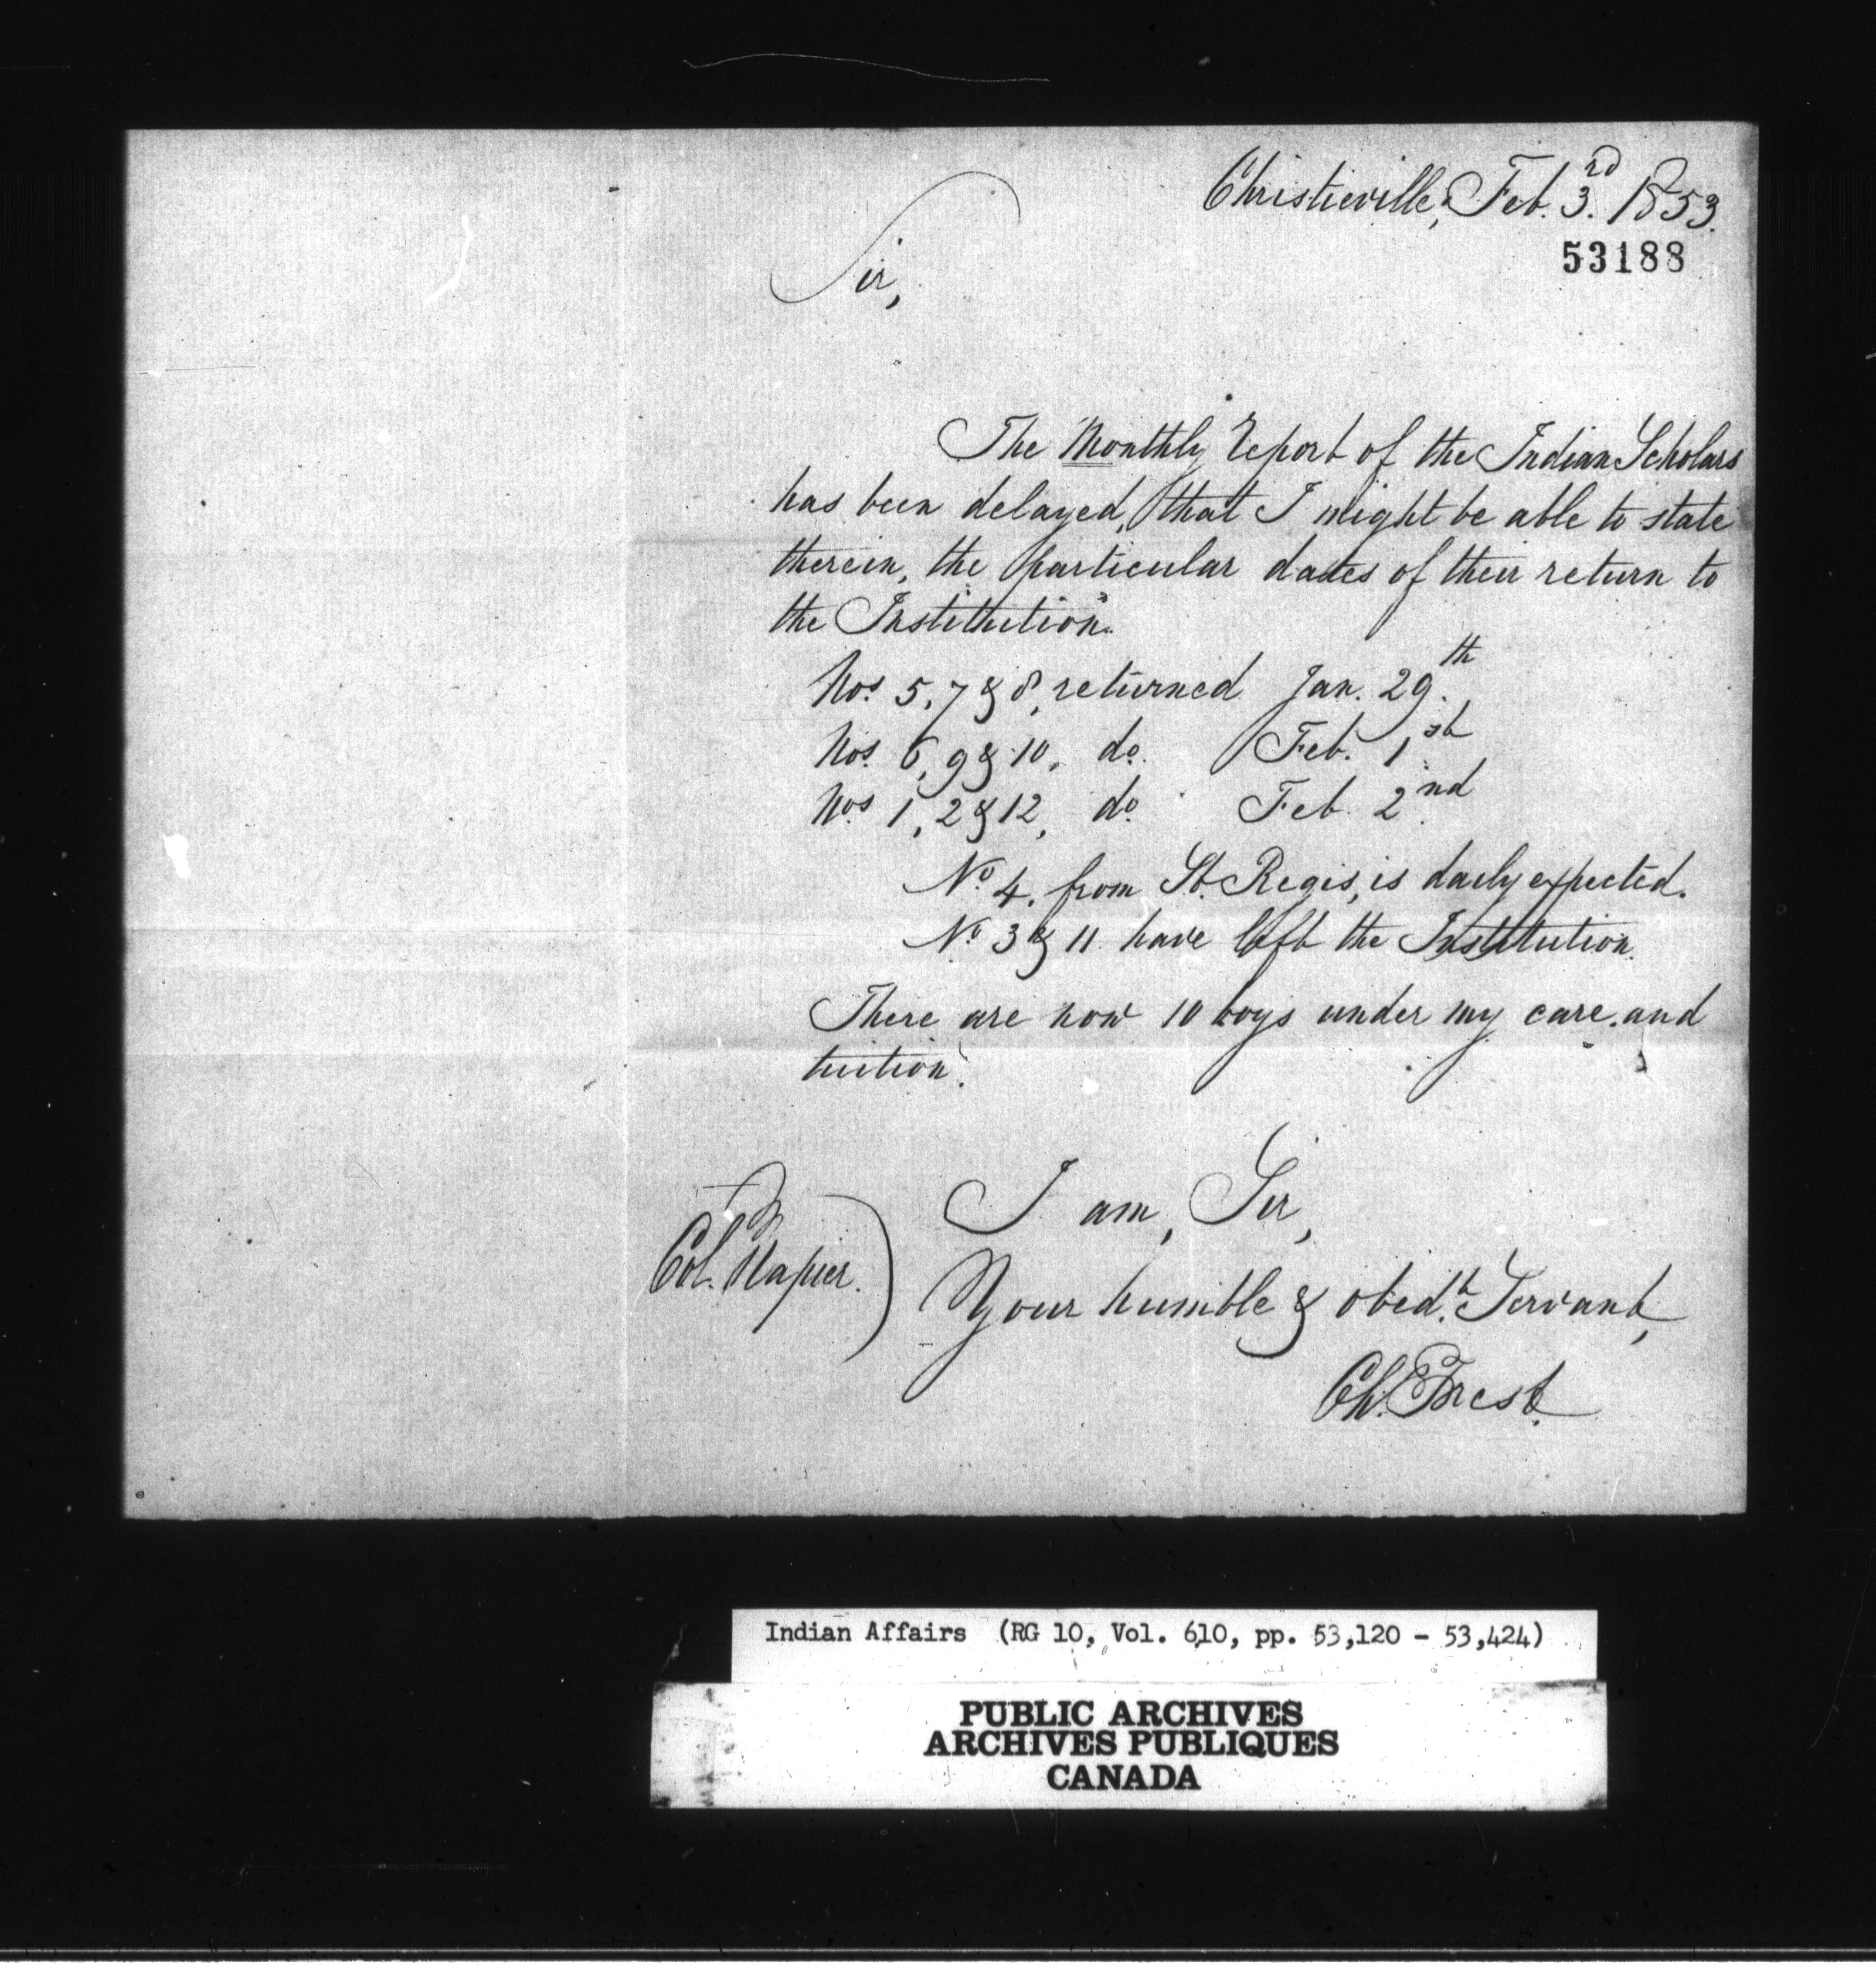 Christieville, Feb. 3rd. 1853.
53188
Sir,
The Monthly Report of the Indian Scholars
has been delayed, that I might be able to state
therein, the particular dates of their return to
the Institution.
Nos. 5, 7 & 8, returned Jan. 29th.
Nos. 6, 9 & 10, do. Feb. 1st
Nos. 1, 2 & 12, do. Feb. 2nd.
No. 4, from St. Regis, is daily expected.
No. 3 & 11 have left the Institution.
There are now 10 boys under my care, and
tuition.
I am, Sir,
Col. Napier.
Your humble & obedt. Servant,
Ch. Forest.
Indian Affairs (RG 10, Vol. 610, pp. 53,120 - 53,424)
PUBLIC ARCHIVES
ARCHIVES PUBLIQUES
CANADA